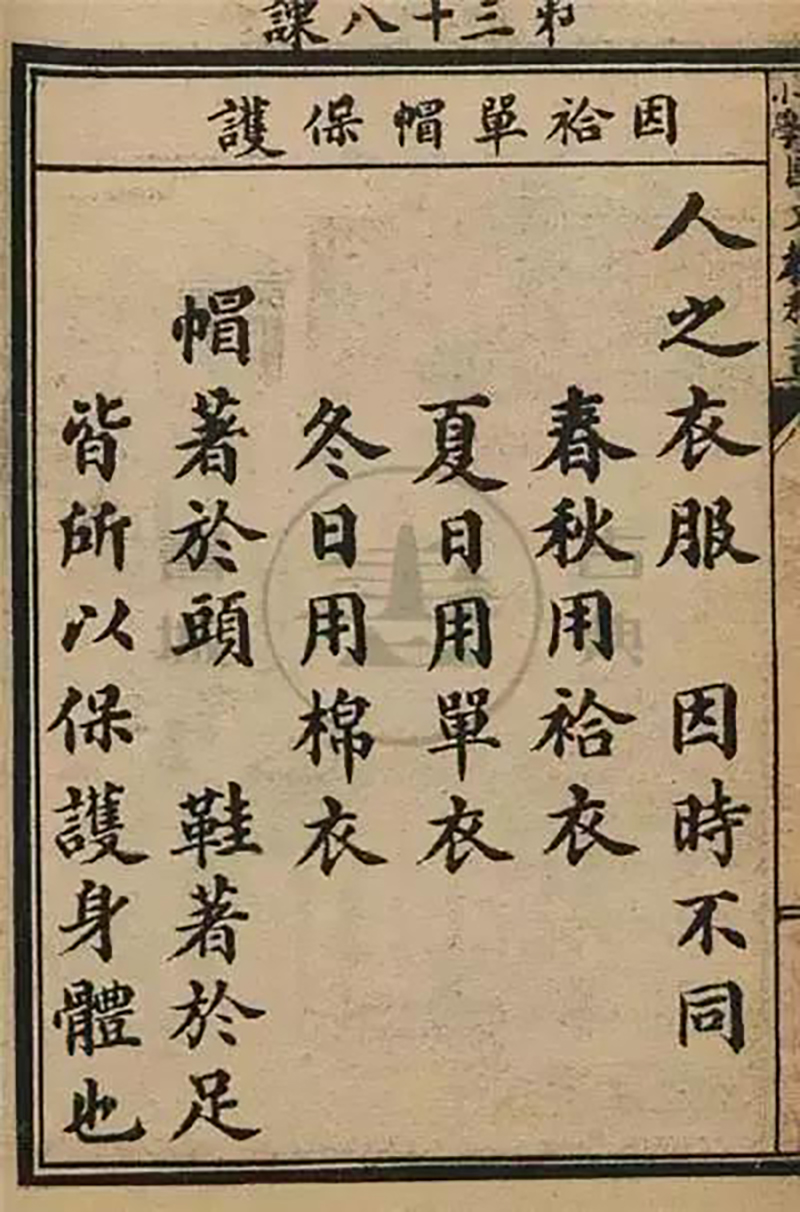 第三十八課
因袷單帽保護
小學國文教科書
人之衣服　因時不同
春秋用袷衣
夏日用單衣
冬日用棉衣
帽著於頭　鞋著於足
皆所以保護身體也